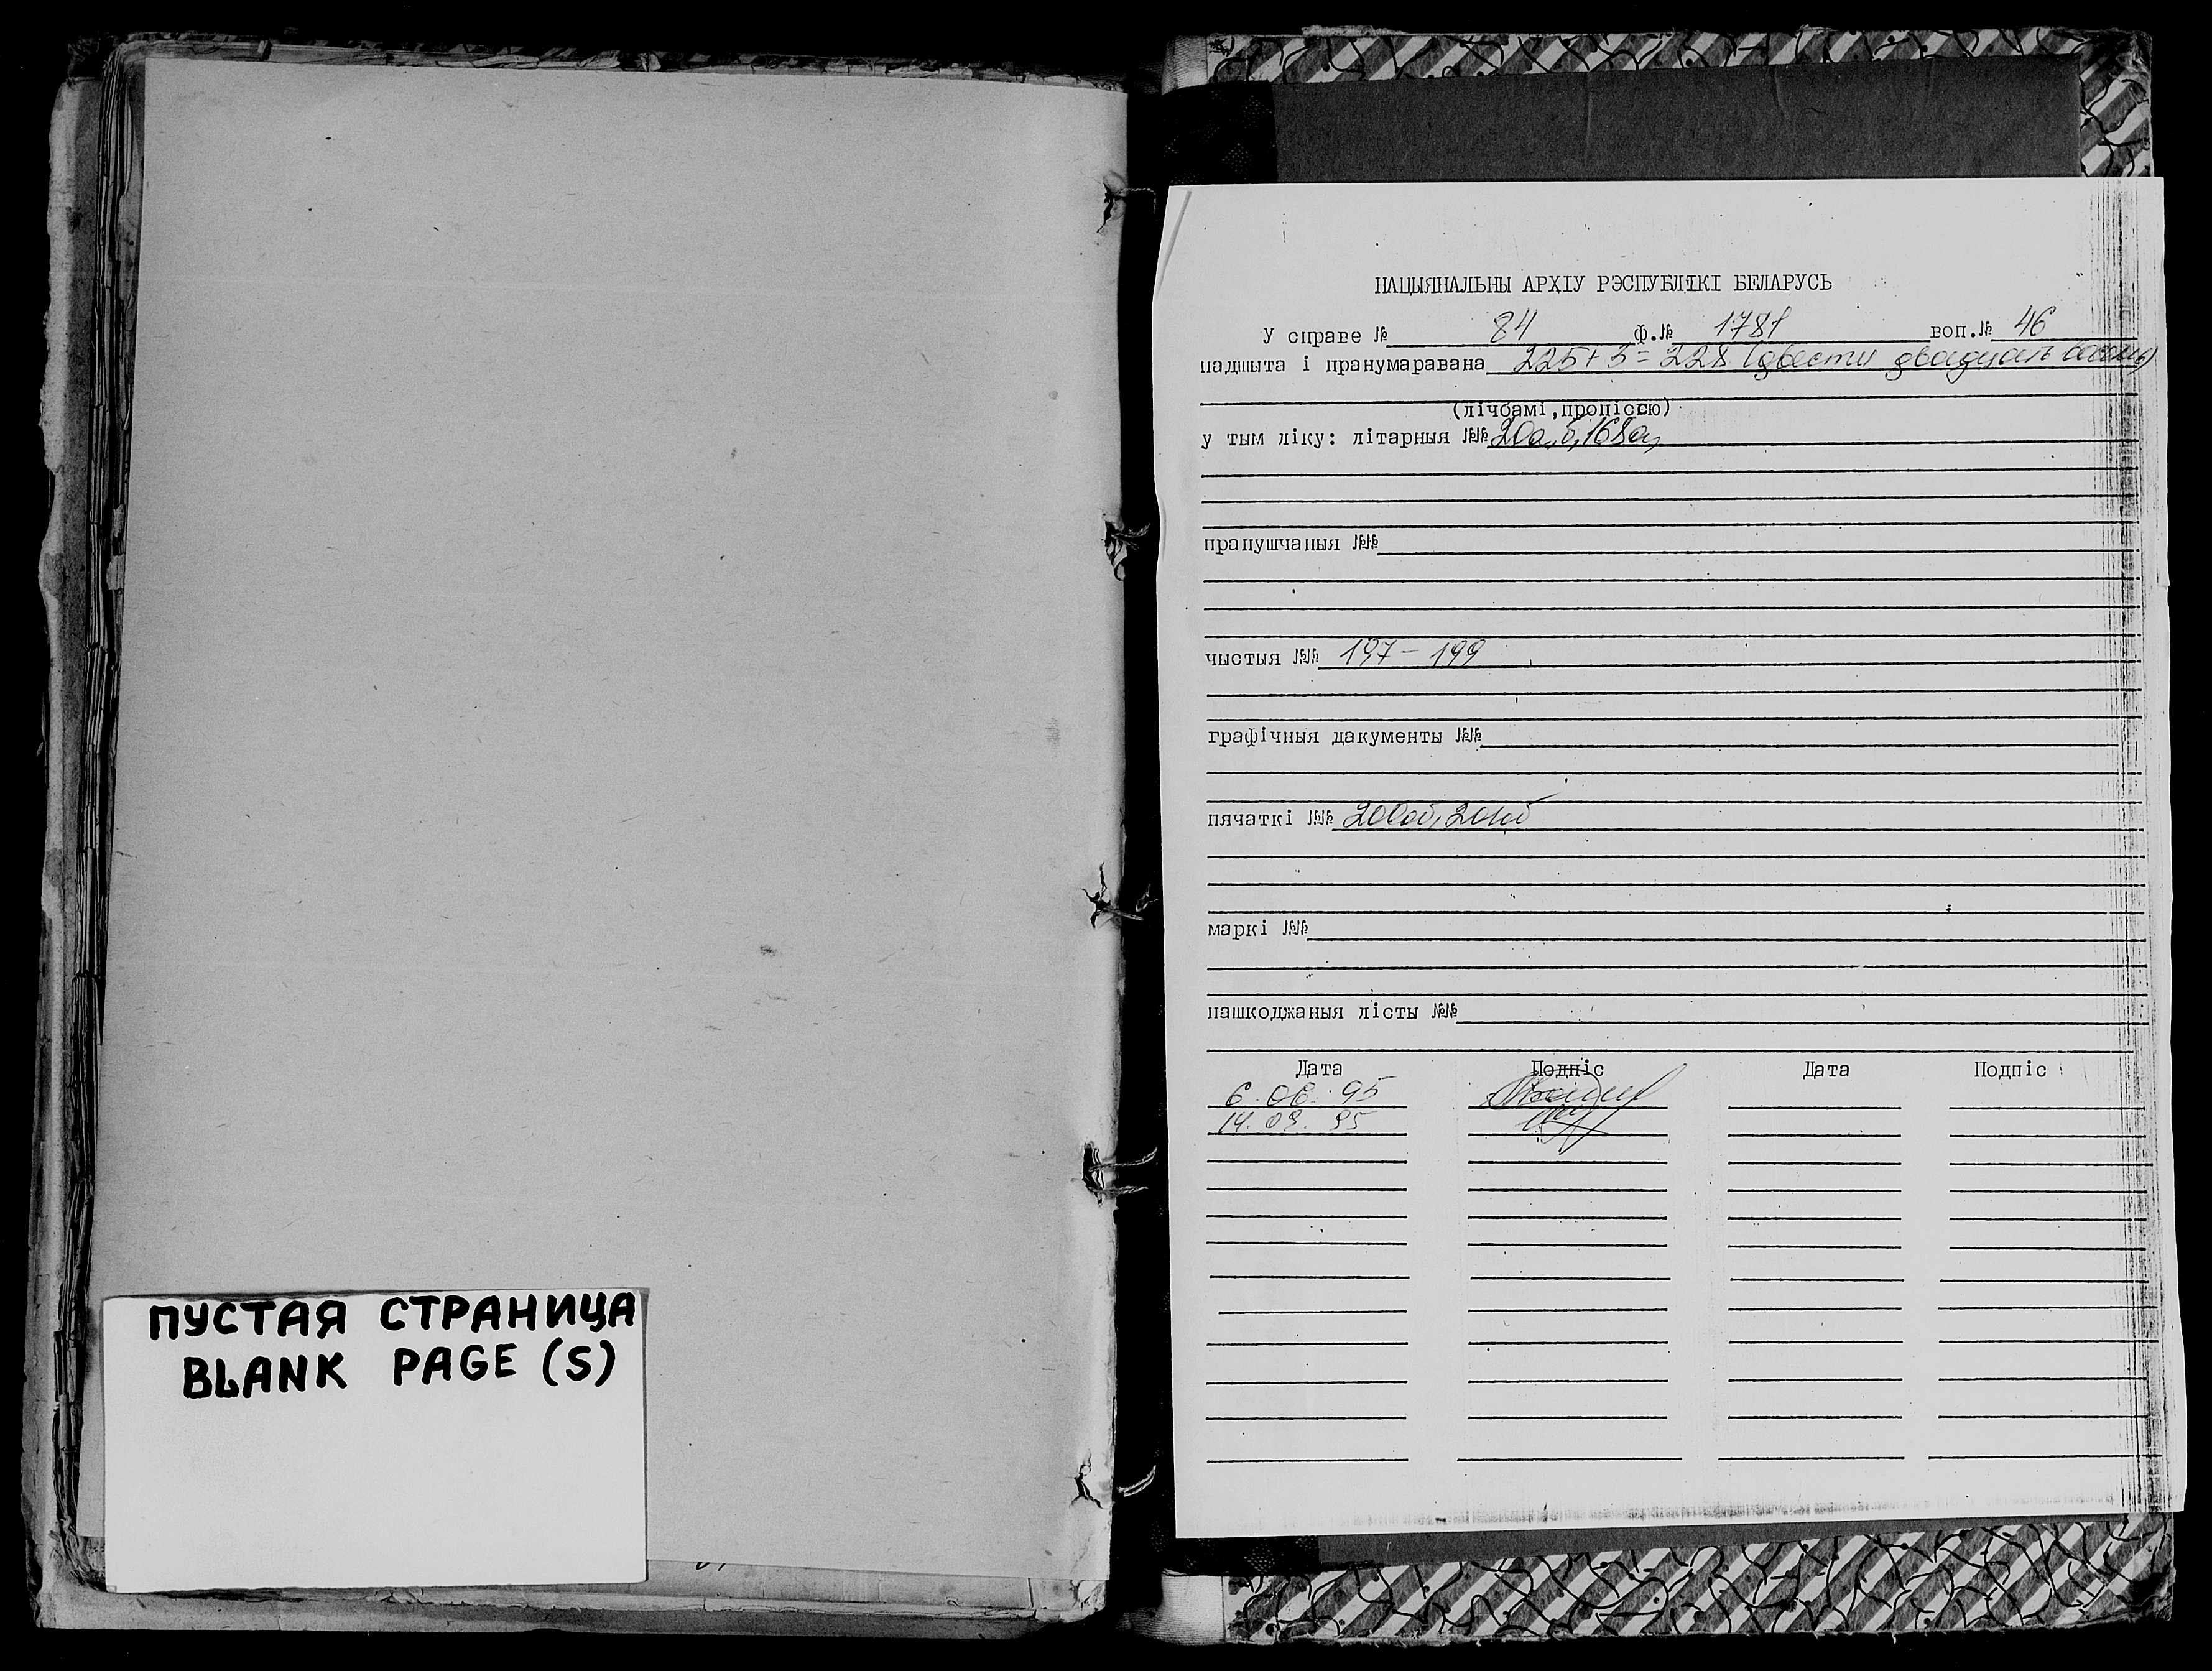 ПУСТАЯ СТРАНИЦА
BLANK PAGE (S)
НАЦЫЯНАЛЬНЫ АРХІУ РЭСПУБЛІКІ БЕЛАРУСЬ
У справе № 84 ф.№ 1781 воп.№ 46
падшыта і пранумаравана 225+3=228 (двести двадцать восемь)
(лічбамі,пропіссю)
у тым ліку: літарныя №№ 20а,б,168а,
прапушчаныя №№
чыстыя №№ 197-199
графічныя дакументы №№
пячаткі №№ 200об, 201об
маркі №№
пашкоджаныя лісты №№
Дата Подпіс Дата Подпіс
6.06.95
14.09.95